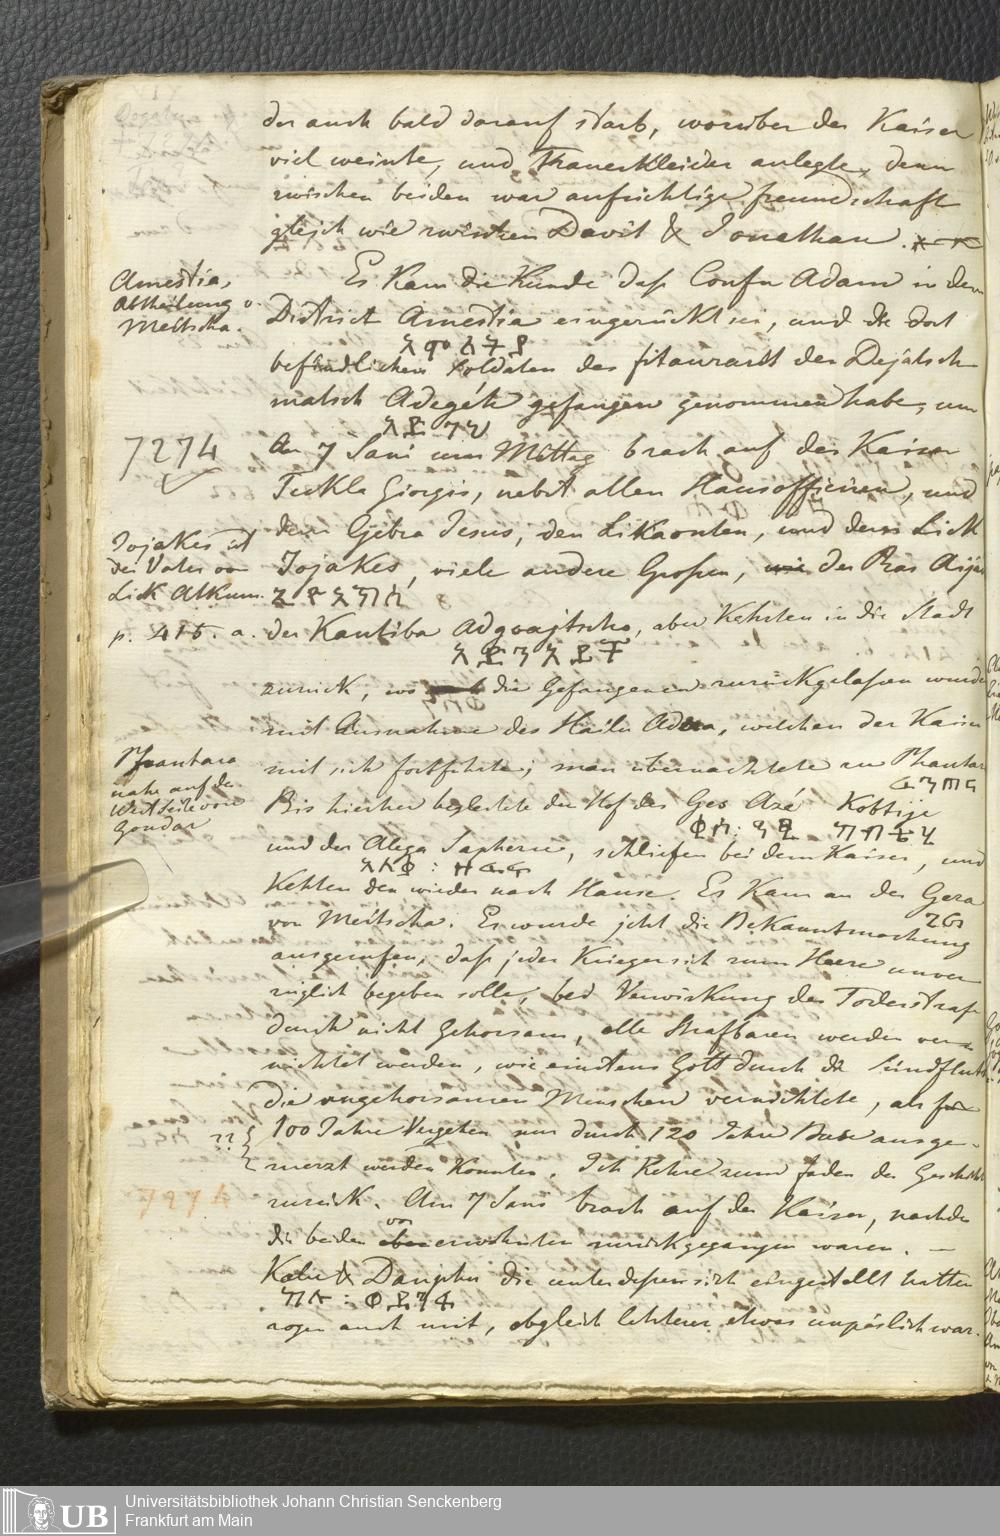 der auch bald darauf starb, worüber der Kaiser
viel weinte, und Trauerkleider anlegte, denn
zwischen beiden war aufrichtige freundschaft
gleich wie zwischen David & Jonathan.
Amestia,
Abtheilung v.
Meitscha.
Es kam die Kunde daß Confu Adam in dem
District Amestia eingerückt sei, und die dort
አምስትያ
befindlichen Soldaten des fitaurari des Dejatsch
matsch Adegéh gefangen genommen habe, um
አደጌህ
7274
Am 7 Sani um Mittag brach auf der Kaiser
Tekla Giorgis, nebst allen Hausofficieren, und
dem Gebra Jesus, den Likaonten, und dem Lick
Jojakes ist
der Vater von
Lick Atkum.
p. 415. a.
Jojakes, viele andere Großen, der Ras Aija
der Kantiba Adgoajtscho, aber kehrten in die Stadt
zurück, wo die Gefangenen zurückgelassen wurden
mit Ausnahme des Hailu Adera, welchen der Kaiser
Pfrantara
nahe auf der
Westseite von
Gondar
mit sich fortführte; man übernachtete zu Phantar
ፈንጠር
Bis hierher begleitete der Hof des Ges Azé Kobtije
ቀስ : ዓፄ
und der Alega Sapherie, schliefen bei dem Kaiser, und
አለቀ : ዘፈሩ
kehrten den wieder nach Hause. Es kam an der Gera
von Meitscha. Es wurde jetzt die Bekanntmachung
ausgerufen, daß jeder Krieger sich zum Heere unver
züglich begeben solle, bei Verwirkung der Todesstrafe
durch nicht Gehorsam, alle Strafbaren werden ver
nichtet werden, wie einstens Gott durch die Sündfluth
die ungehorsamen Menschen vernichtete, als
??
100 Jahre Vergehen nur durch 120 Jahre Buse ausge-
merzt werden konnten. Ich kehre zum faden der Geschichte
7274
zurück. Am 7 Sani brach auf der Kaiser, nachdem
die beiden vorerwähnten zurückgegangen waren. —
& Danghu die unterdessen sich eingestellt hatten
zogen auch mit, obgleich letzterer etwas unpäslich war.
UB
Universitätsbibliothek Johann Christian Senckenberg
Frankfurt am Main